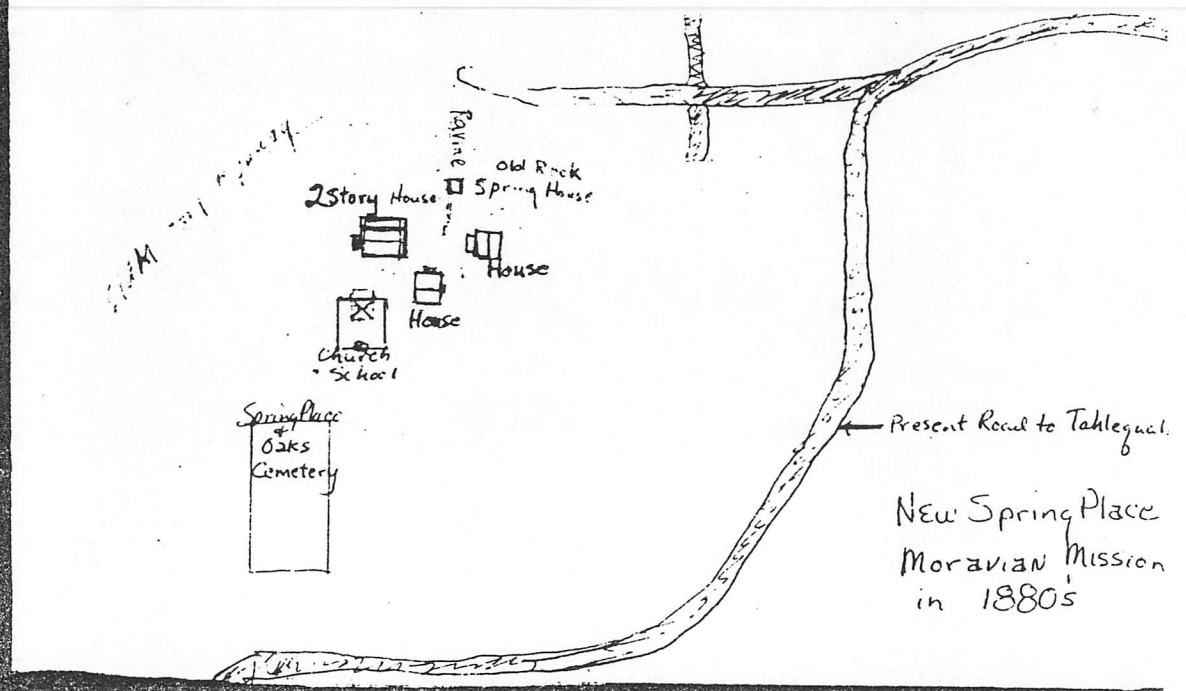 Ravine
Old Rock
Spring House
2 Story House
House
House
Church
School
Spring Place
&
Oaks
Cemetery
Present Road to Tahlequah
New Spring Place
Moravian Mission
in 1880's